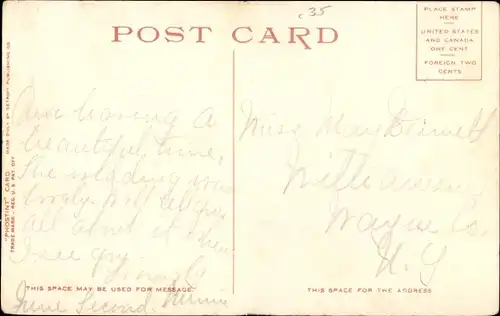 c35
POST CARD
PLACE STAMP
HERE
UNITED STATES
AND CANADA
ONE CENT
FOREIGN TWO
CENTS
"PHOSTINT" CARD MADE ONLY BY DETROIT PUBLISHING CO.
TRADE MARK - REG. U.S. PAT. OFF.
Am having a
beautiful time.
The wedding was
lovely. Will tell you
all about it when
I see you.
Minnie
June Second.
Miss May
Williamson
Wayne Co.
N. Y
THIS SPACE MAY BE USED FOR MESSAGE.
THIS SPACE IS FOR THE ADDRESS